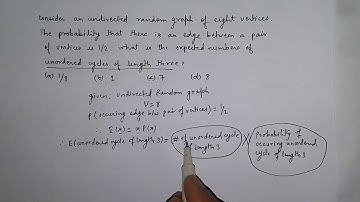 Consider an undirected random graph of eight vertices.
The probability that there is an edge between a pair
of vertices is 1/2. what is the expected numbers of
unordered cycles of length three?
(a) 1/8 (b) 1 (c) 7 (d) 8
given: undirected Random graph
V=8
P(occuring edge b/w pair of vertices) = 1/2
∴ E(x) = x P(x)
∴ E(unordered cycle of length 3) = (# of unordered cycle of length 3) X (Probability of occuring unordered cycle of length 3)